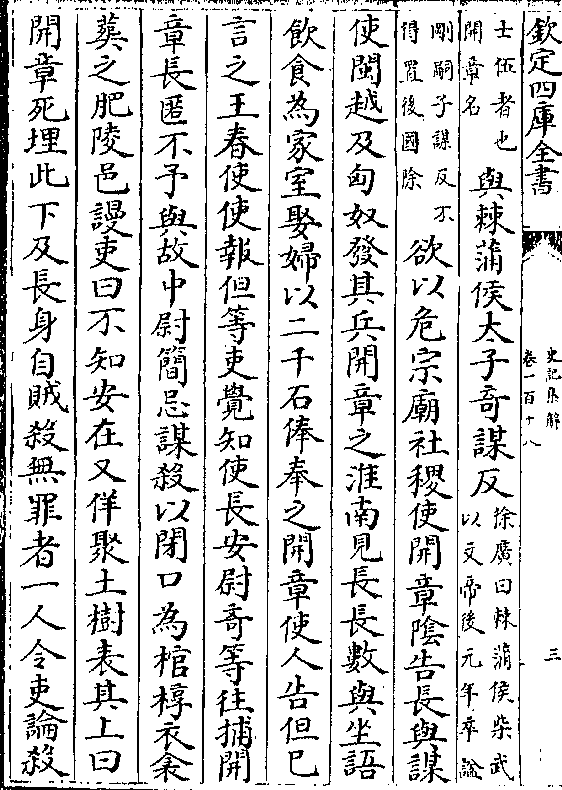 欽定四庫全書
史記集解
卷一百十八
三
士伍者也
開章名
與棘蒲侯太子奇謀反
徐廣曰棘蒲侯柴武
以文帝後元年卒諡
剛嗣子謀反不
得置後國除
欲以危宗廟社稷使開章陰告長與謀
使閩越及匈奴發其兵開章之淮南見長長數與坐語
飲食為家室娶婦以二千石俸奉之開章使人告但已
言之王春使使報但等吏覺知使長安尉奇等往捕開
章長匿不予與故中尉簡忌謀殺以閉口為棺椁衣衾
葬之肥陵邑謾吏曰不知安在又佯聚土樹表其上曰
開章死埋此下及長身自賊殺無罪者一人令吏論殺